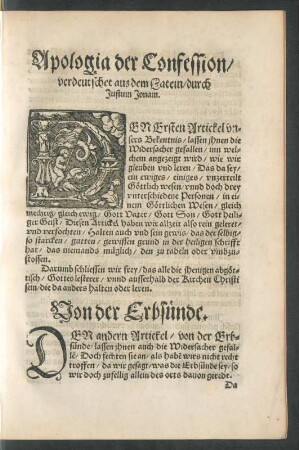 Apologia der Confession/
verdeutschet aus dem Latein/durch
Justum Jonam.
DEN Ersten Artickel vn-
sers Bekentnis/ lassen jhnen die
Widersacher gefallen/ inn wel-
chem angezeigt wird/ wie wir
gleuben vnd leren/ Das da sey
ein ewiges/ einiges/ vnzerteilt
Göttlich wesen/ vnnd doch drey
vnterschiedene Personen/ in ei-
nem Göttlichen Wesen/ gleich
mechtig/ gleich ewig/ Gott Vater/ Gott Son/ Gott heili-
ger Geist. Diesen Artickel haben wir allzeit also rein geleret/
vnd verfochten/ Halten auch vnd sein gewis/ das der selbig/
so starcken/ gutten/ gewissen grund in der heiligen schrifft
hat/ das niemands müglich/ den zu tadeln oder vmbzu-
stossen.
Darumb schliessen wir frey/ das alle die jhenigen abgöt-
tisch/ Gottes lesterer/ vnnd ausserhalb der Kirchen Christi
sein/ die da anders halten oder leren.
Von der Erbsünde.
DEN andern Artickel/ von der Erb-
sünde/ lassen jhnen auch die Widersacher gefal-
len/ Doch fechten sie an/ als habē wirs nicht recht
troffen/ da wir gesagt/ was die Erbsünde sey/ so
wir doch zufellig allein des orts dauon geredt.
Da